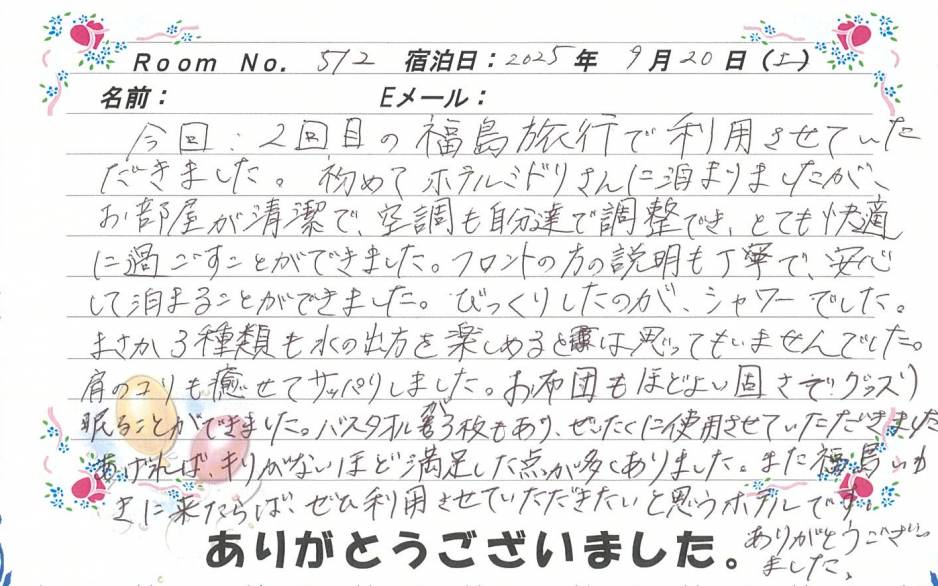 Room No. 512 宿泊日：2025年 9月20日（土）
名前： Eメール：
今回、2回目の福島旅行で利用させていた
だきました。初めてホテルミドリさんに泊まりましたが、
お部屋が清潔で、空調も自分達で調整でき、とても快適
に過ごすことができました。フロントの方の説明も丁寧で、安心
して泊まることができました。びっくりしたのが、シャワーでした。
まさか3種類も水の出方を楽しめるとは思ってもいませんでした。
肩のコリも癒せてサッパリしました。お布団もほどよい固さでグッスリ
眠ることができました。バスタオルが3枚もあり、ぜいたくに使用させていただきました
あげれば、キリがないほど満足した点が多くありました。また福島
きに来たらば、ぜひ利用させていただきたいと思うホテルです。
ありがとうございました。
ありがとうござい
ました。